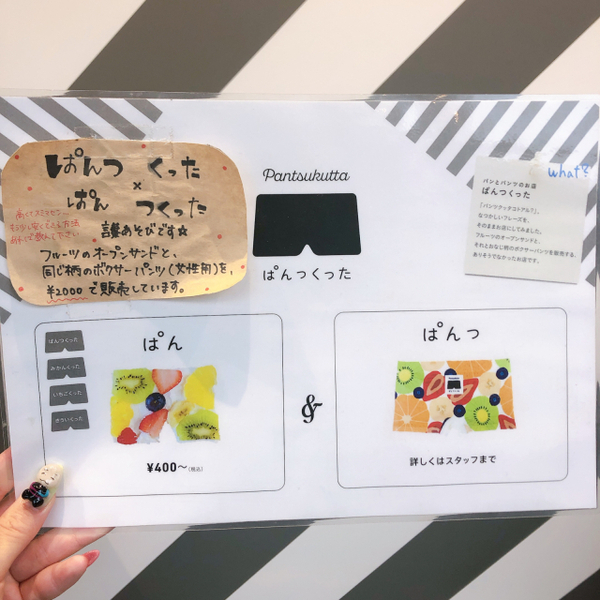 ぱんつ くった
×
ぱん つくった
言葉あそびです☆
フルーツのオープンサンドと、
同じ柄のボクサーパンツ(女性用)を、
¥2000で販売しています。
Pantsukutta
ぱんつくった
what?
パンとパンツのお店
ぱんつくった
「パンツクッタコトアル?」、
なつかしいフレーズを、
そのままお店にしてみました。
フルーツのオープンサンドと、
それとおなじ柄のボクサーパンツを販売する、
ありそうでなかったお店です。
ぱん
ぱんつくった
みかんくった
いちごくった
きういくった
¥400〜(税込)
&
ぱんつ
詳しくはスタッフまで